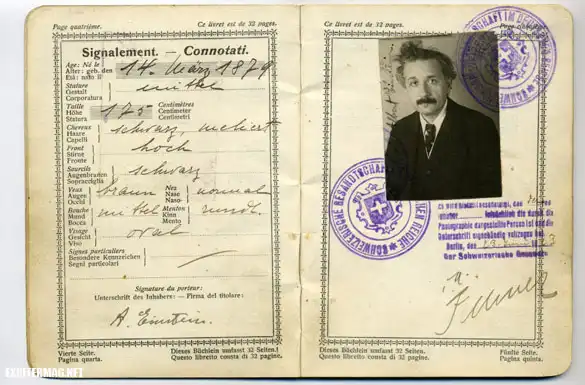 Page quatrième. Ce livret est de 32 pages.
Signalement. — Connotati.
Age: Né le
Alter: geb. den 14. März 1879
Età: nato il
Stature
Gestalt mittel
Corporatura
Taille Centimètres
Höhe 175 Centimeter
Statura Centimetri
Cheveux
Haare schwarz, meliert
Capelli
Front
Stirne hoch
Fronte
Sourcils
Augenbrauen schwarz
Sopracciglia
Yeux Nez
Augen braun Nase normal
Occhi Naso
Bouche Menton
Mund mittel Kinn rund.
Bocca Mento
Visage
Gesicht oval
Viso
Signes particuliers
Besondere Kennzeichen
Segni particolari
Signature du porteur:
Unterschrift des Inhabers: — Firma del titolare:
A. Einstein.
Vierte Seite. Dieses Büchlein umfasst 32 Seiten.
Pagina quarta. Questo libretto consta di 32 pagine.
EXHITERMAG.NET
Ce livret est de 32 pages.
SCHWEIZERISCHE GESANDTSCHAFT IM DEUTSCHEN REICHE
Photographie dargestellte Person ist und die
Unterschrift eigenhändig vollzogen hat.
Berlin, den
Der Schweizerische Gesandte
Dieses Büchlein umfasst 32 Seiten. Fünfte Seite.
Questo libretto consta di 32 pagine. Pagina quinta.